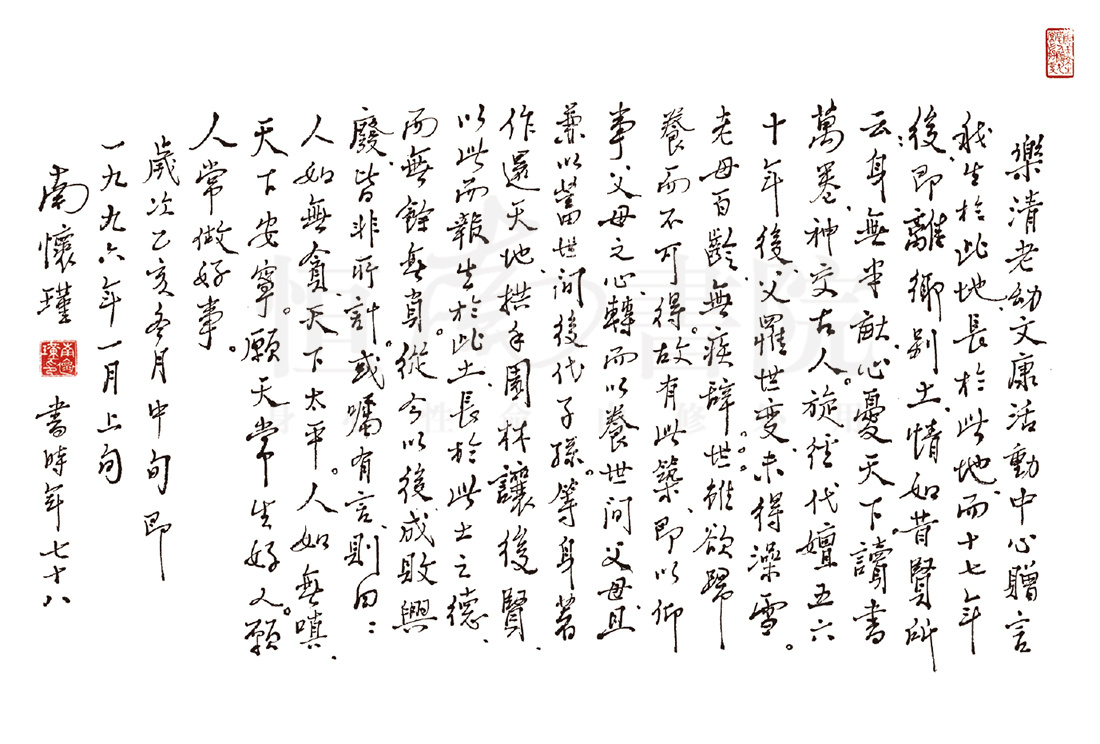 樂清老幼文康活動中心贈言
我生於此地、長於此地、而十七年
後、即離鄉別土、情如昔賢所
云：身無半畝、心憂天下。讀書
萬卷、神交古人。旋經代嬗五六
十年後、父罹世變、未得澡雪。
老母百齡、無疾辭世。雖欲歸
養而不可得。故有此築、即以仰
事父母之心、轉而以養世間父母、且
兼以蓄世間後代子孫。等身著
作還天地、拱手園林讓後賢、
以此而報生於此土、長於此土之德、
而無餘無負。從今以後、成敗興
廢、皆非所計。或囑有言、則曰：
人如無貪、天下太平。人如無嗔、
天下安寧。願天常生好人。願
人常做好事。
歲次乙亥冬月中旬即
一九九六年一月上旬
南懷瑾 書時年七十八
恒南書院